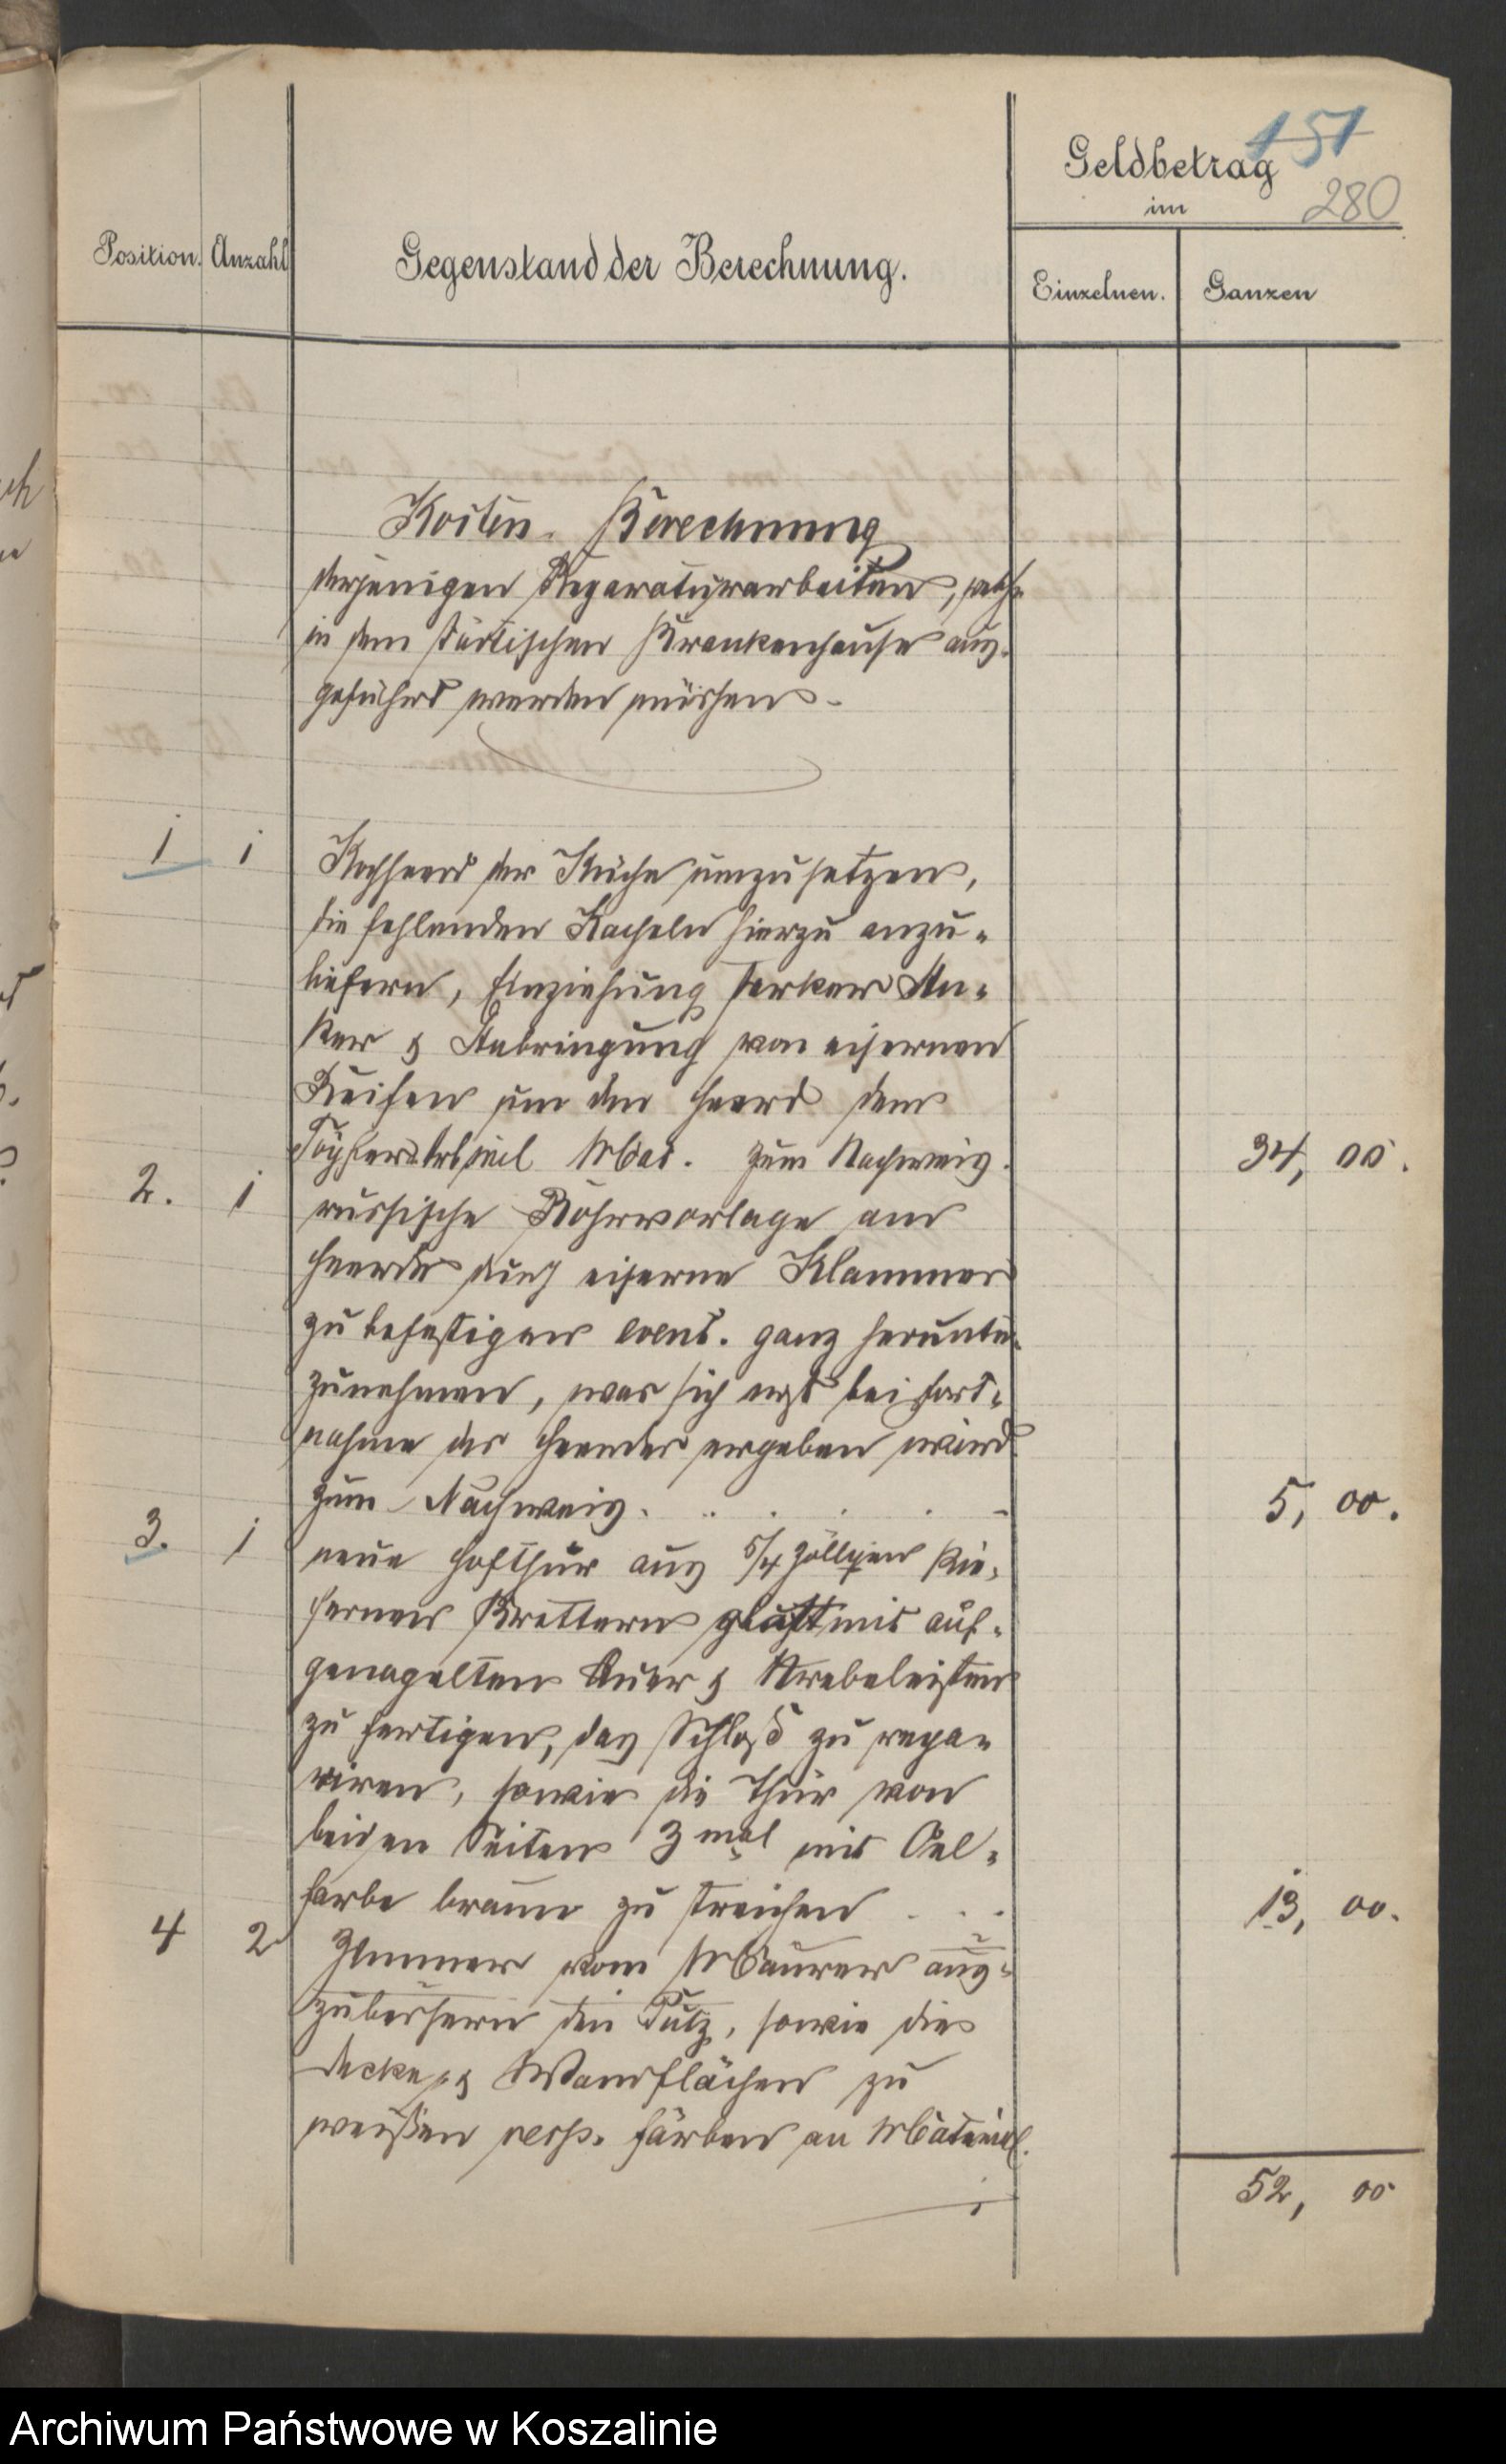 151
Geldbetrag
im
280
Position. Anzahl Gegenstand der Berechnung. Einzelnen. Ganzen
Kosten-Berechnung
derjenigen Reparaturarbeiten, welche
in dem städtischen Krankenhause aus-
geführt werden müssen.
1 1 Kochheerd der Küche umzusetzen,
die fehlenden Kacheln hierzu anzu-
liefern, Einziehung starker An-
ker & Anbringung von eisernen
Reifen um den Heerd dem
Töpfer incl Mat. zum Nachweis. 34, 00.
2. 1 russische Rohrvorlage am
Heerde durch eiserne Klammer
zu befestigen event. ganz herunter
zunehmen, was sich erst bei Fort-
nahme des Heerdes ergeben wird
zum Nachweis. . . . . - 5, 00.
3. 1 neue Hofthür aus 5/4 zölligen kie-
fernen Brettern glatt mit auf-
genagelten Quer & Strebeleisten
zu fertigen, das Schloß zu repa-
riren, sowie die Thür von
beiden Seiten 3 mal mit Oel-
farbe braun zu streichen . . . 13, 00.
4 2 Zimmer vom Maurer aus-
zubessern den Putz, sowie die
Decke & Wandflächen zu
weißen resp. färben an Material.
52, 00
Archiwum Państwowe w Koszalinie